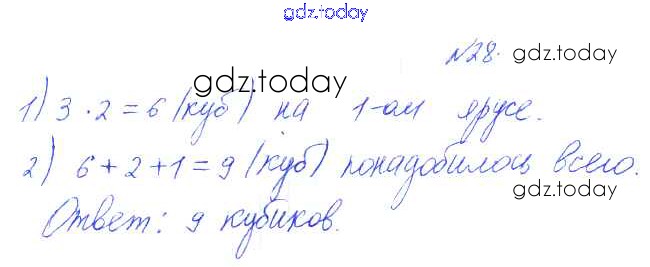 gdz.today
№28. gdz.today
gdz.today
1) 3 · 2 = 6 (куб) на 1-ом ярусе.
2) 6 + 2 + 1 = 9 (куб) понадобилось всего.
gdz.today
Ответ: 9 кубиков.